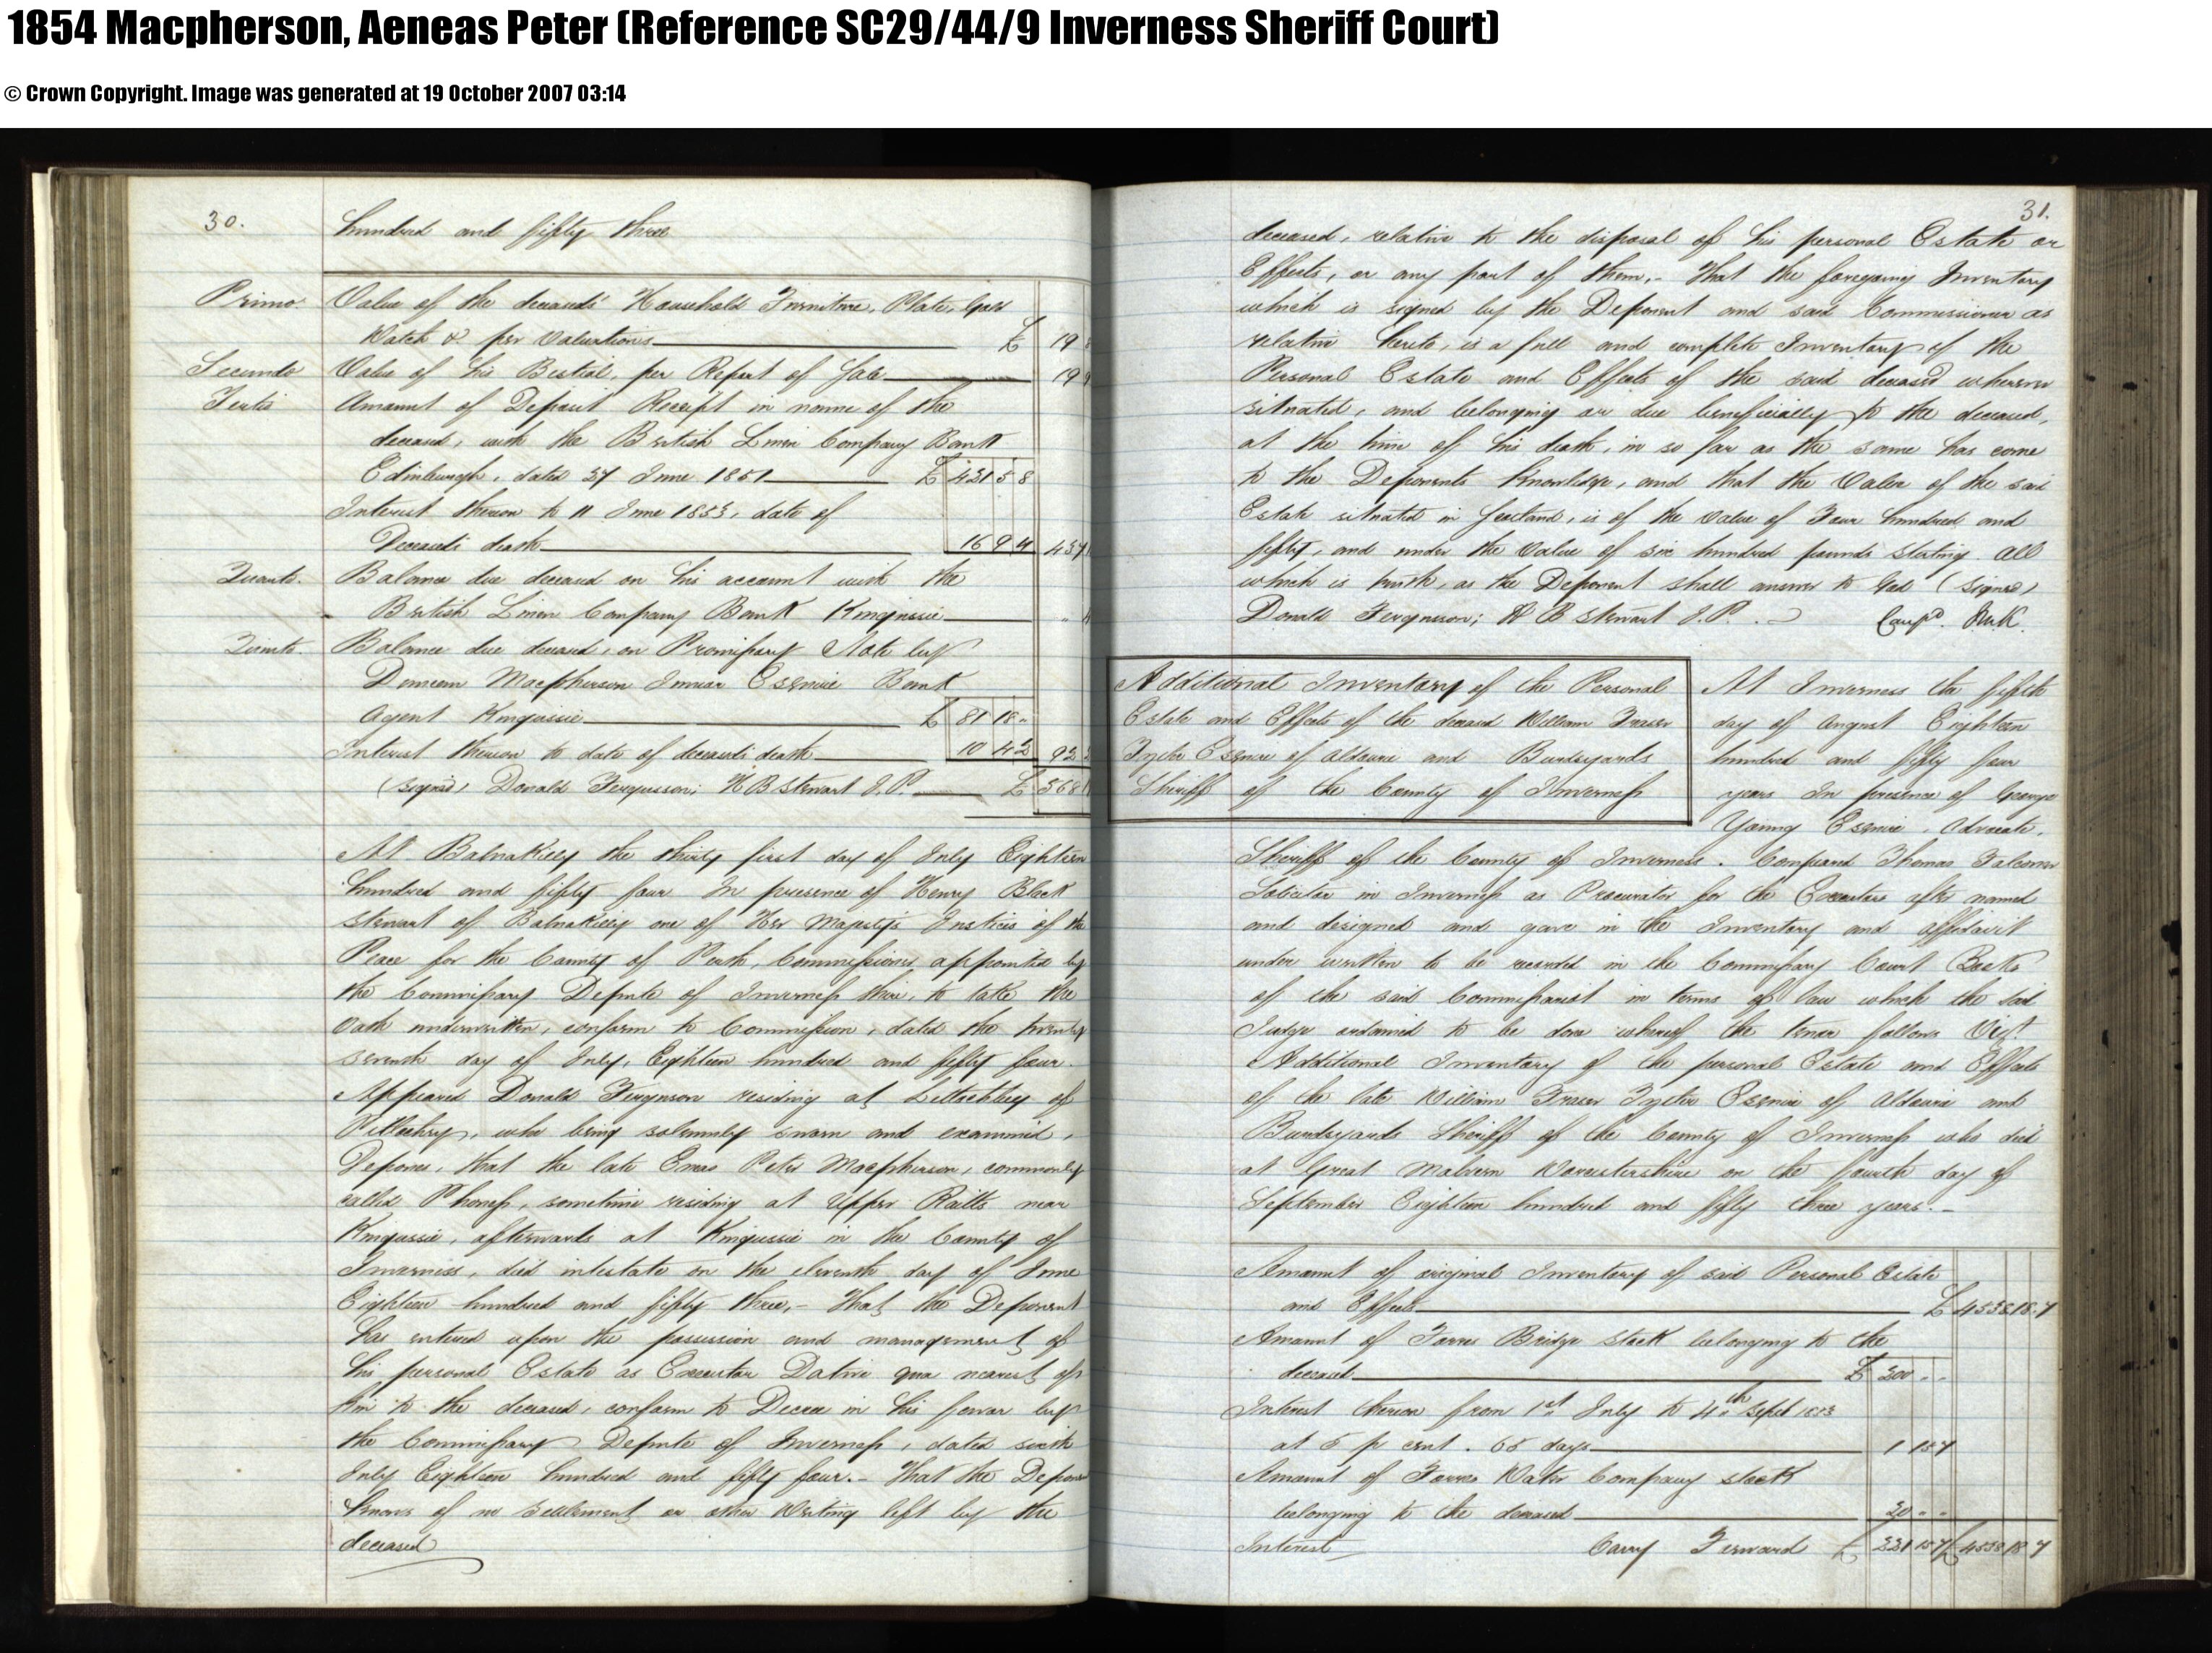 1854 Macpherson, Aeneas Peter (Reference SC29/44/9 Inverness Sheriff Court)
© Crown Copyright. Image was generated at 19 October 2007 03:14
30.
hundred and fifty three
Primo. Value of the deceased's Household Furniture, Plate, Gold
Watch & per Valuations £ 19
Secundo Value of his Bestial, per Report of Sale 19
Tertio Amount of Deposit Receipt in name of the
deceased, with the British Linen Company Bank
Edinburgh, dated 27 June 1851 £ 421 5 8
Interest thereon to 11 June 1853, date of
Deceased's death 16 9 4 437
Quarto. Balance due deceased on his account with the
British Linen Company Bank Kingussie
Quinto. Balance due deceased, on Promissory Note by
Duncan Macpherson Junior Esquire Bank
Agent Kingussie £ 81 18 "
Interest thereon to date of deceased's death 10 4 2 92
(signed) Donald Fergusson; H B Stewart J.P. £ 568
At Balnakilly the thirty first day of July Eighteen
hundred and fifty four In presence of Henry Black
Stewart of Balnakilly one of Her Majesty's Justices of the
Peace for the County of Perth, Commissioner appointed by
the Commissary Depute of Inverness shire, to take the
Oath underwritten, conform to Commission, dated the twenty
seventh day of July, Eighteen hundred and fifty four.
Appeared Donald Fergusson residing at of
Pitlochry, who being solemnly sworn and examined,
Depones, that the late Eneas Peter Macpherson, commonly
called Phoness, sometime residing at Upper Raitts near
Kingussie, afterwards at Kingussie in the County of
Inverness, died intestate on the eleventh day of June
Eighteen hundred and fifty three,- That the Deponent
has entered upon the possession and management of
his personal Estate as Executor Dative qua nearest of
kin to the deceased, conform to Decree in his favor by
the Commissary Depute of Inverness, dated sixth
July Eighteen hundred and fifty four.- That the Depon
knows of no Settlement or other Writing left by the
deceased
31.
deceased, relative to the disposal of his personal Estate or
Effects, or any part of them,- That the foregoing Inventory
which is signed by the Deponent and said Commissioner as
relative hereto, is a full and complete Inventory of the
Personal Estate and Effects of the said deceased wherever
situated, and belonging or due beneficially to the deceased,
at the time of his death, in so far as the same has come
to the Deponents knowledge, and that the Value of the said
Estate situated in Scotland, is of the value of Four hundred and
fifty, and under the Value of six hundred pounds Sterling. All
which is truth, as the Deponent shall answer to God (signed)
Donald Fergusson; H B Stewart J.P. Comp'd.
Additional Inventory of the Personal
Estate and Effects of the deceased William Fraser
Tytler Esquire of Aldourie and Burdsyards
Sheriff of the County of Inverness
At Inverness the fifth
day of August Eighteen
hundred and fifty four
years In presence of George
Young Esquire, Advocate,
Sheriff of the County of Inverness. Compeared Thomas Falconer
Solicitor in Inverness as Procurator for the Executors after named
and designed and gave in the Inventory and Affidavit
under written to be recorded in the Commissary Court Books
of the said Commissariot in terms of law which the said
Judge ordained to be done whereof the tenor follows Vizt.
Additional Inventory of the personal Estate and Effects
of the late William Fraser Tytler Esquire of Aldourie and
Burdsyards Sheriff of the County of Inverness who died
at Great Malvern Worcestershire on the fourth day of
September Eighteen hundred and fifty three years.-
Amount of original Inventory of said Personal Estate
and Effects £ 4538 18 7
Amount of Forres Bridge Stock belonging to the
deceased £ 200 " "
Interest thereon from 1st July to 4th Sept 1853
at 5 p cent. 65 days 1 15 7
Amount of Forres Water Company Stock
belonging to the deceased 20 " "
Interest Carry Forward £ 221 15 7 £ 4538 18 7